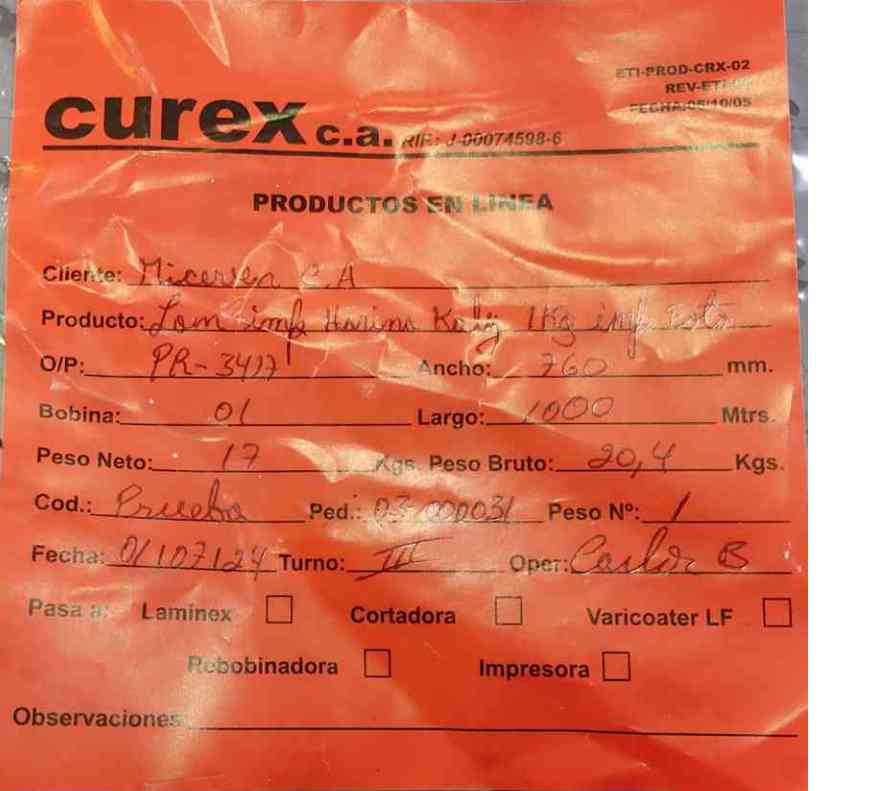 ETI-PROD-CRX-02
REV-ETI
FECHA:05/10/05
curex c.a. RIF: J-00074598-6
PRODUCTOS EN LINEA
Cliente: C.A
Producto: Lam imp Harina Kaly 1Kg imp
O/P: PR-3417 Ancho: 760 mm.
Bobina: 01 Largo: 1000 Mtrs.
Peso Neto: 17 Kgs. Peso Bruto: 20,4 Kgs.
Cod.: Prueba Ped.: 03-000031 Peso Nº: 1
Fecha: 01/07/24 Turno: III Oper: Carlos B
Pasa a: Laminex Cortadora Varicoater LF
Rebobinadora Impresora
Observaciones